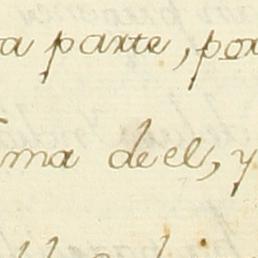 a parte, por
ma deel, y